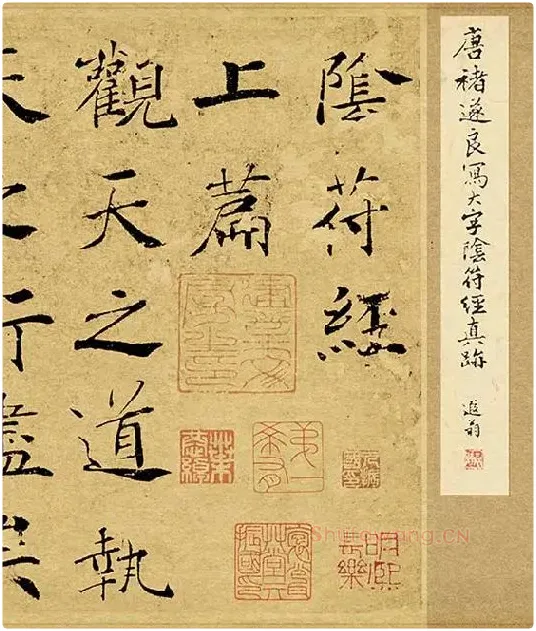 唐褚遂良寫大字陰符經真跡
遐翁
陰符經
上篇
觀天之道執
天之行盡矣
Shufawang.CN